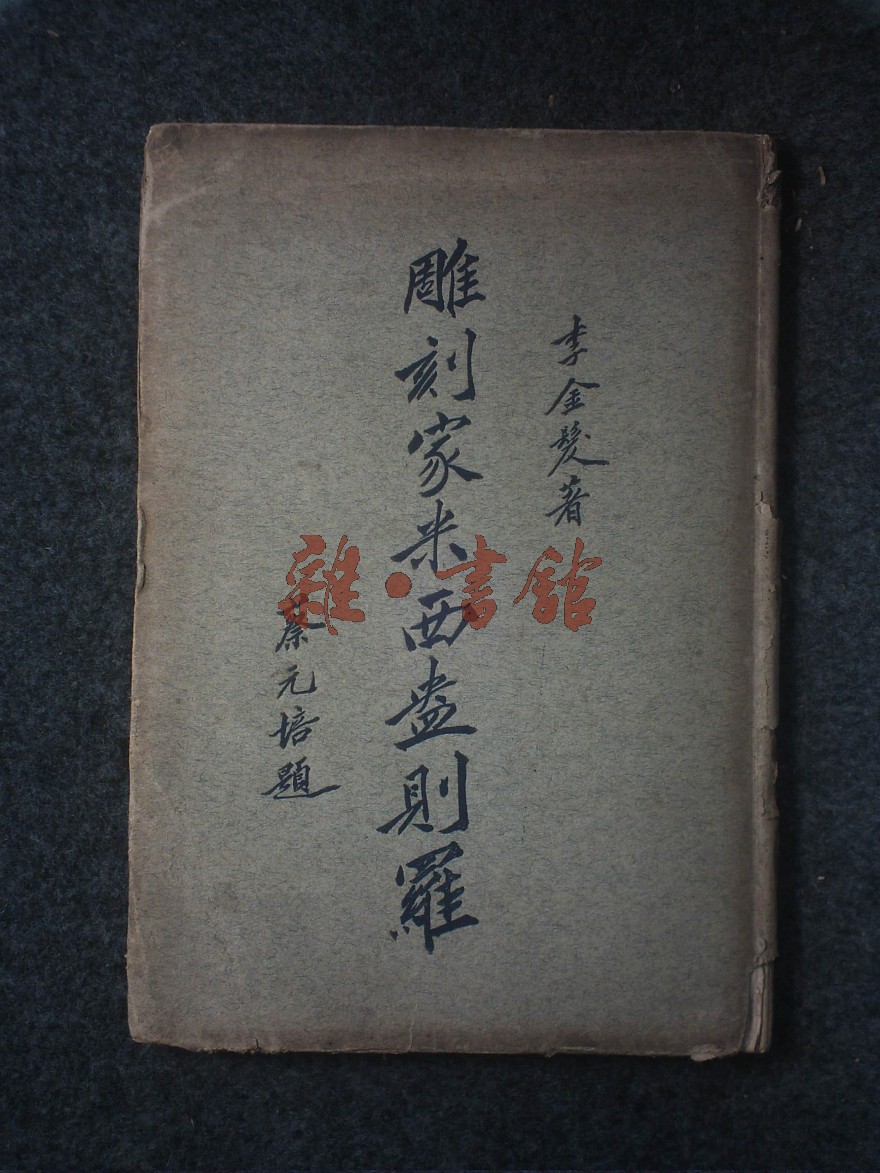 李金髮著
雕刻家米西盎則羅
蔡元培題
雜·書館